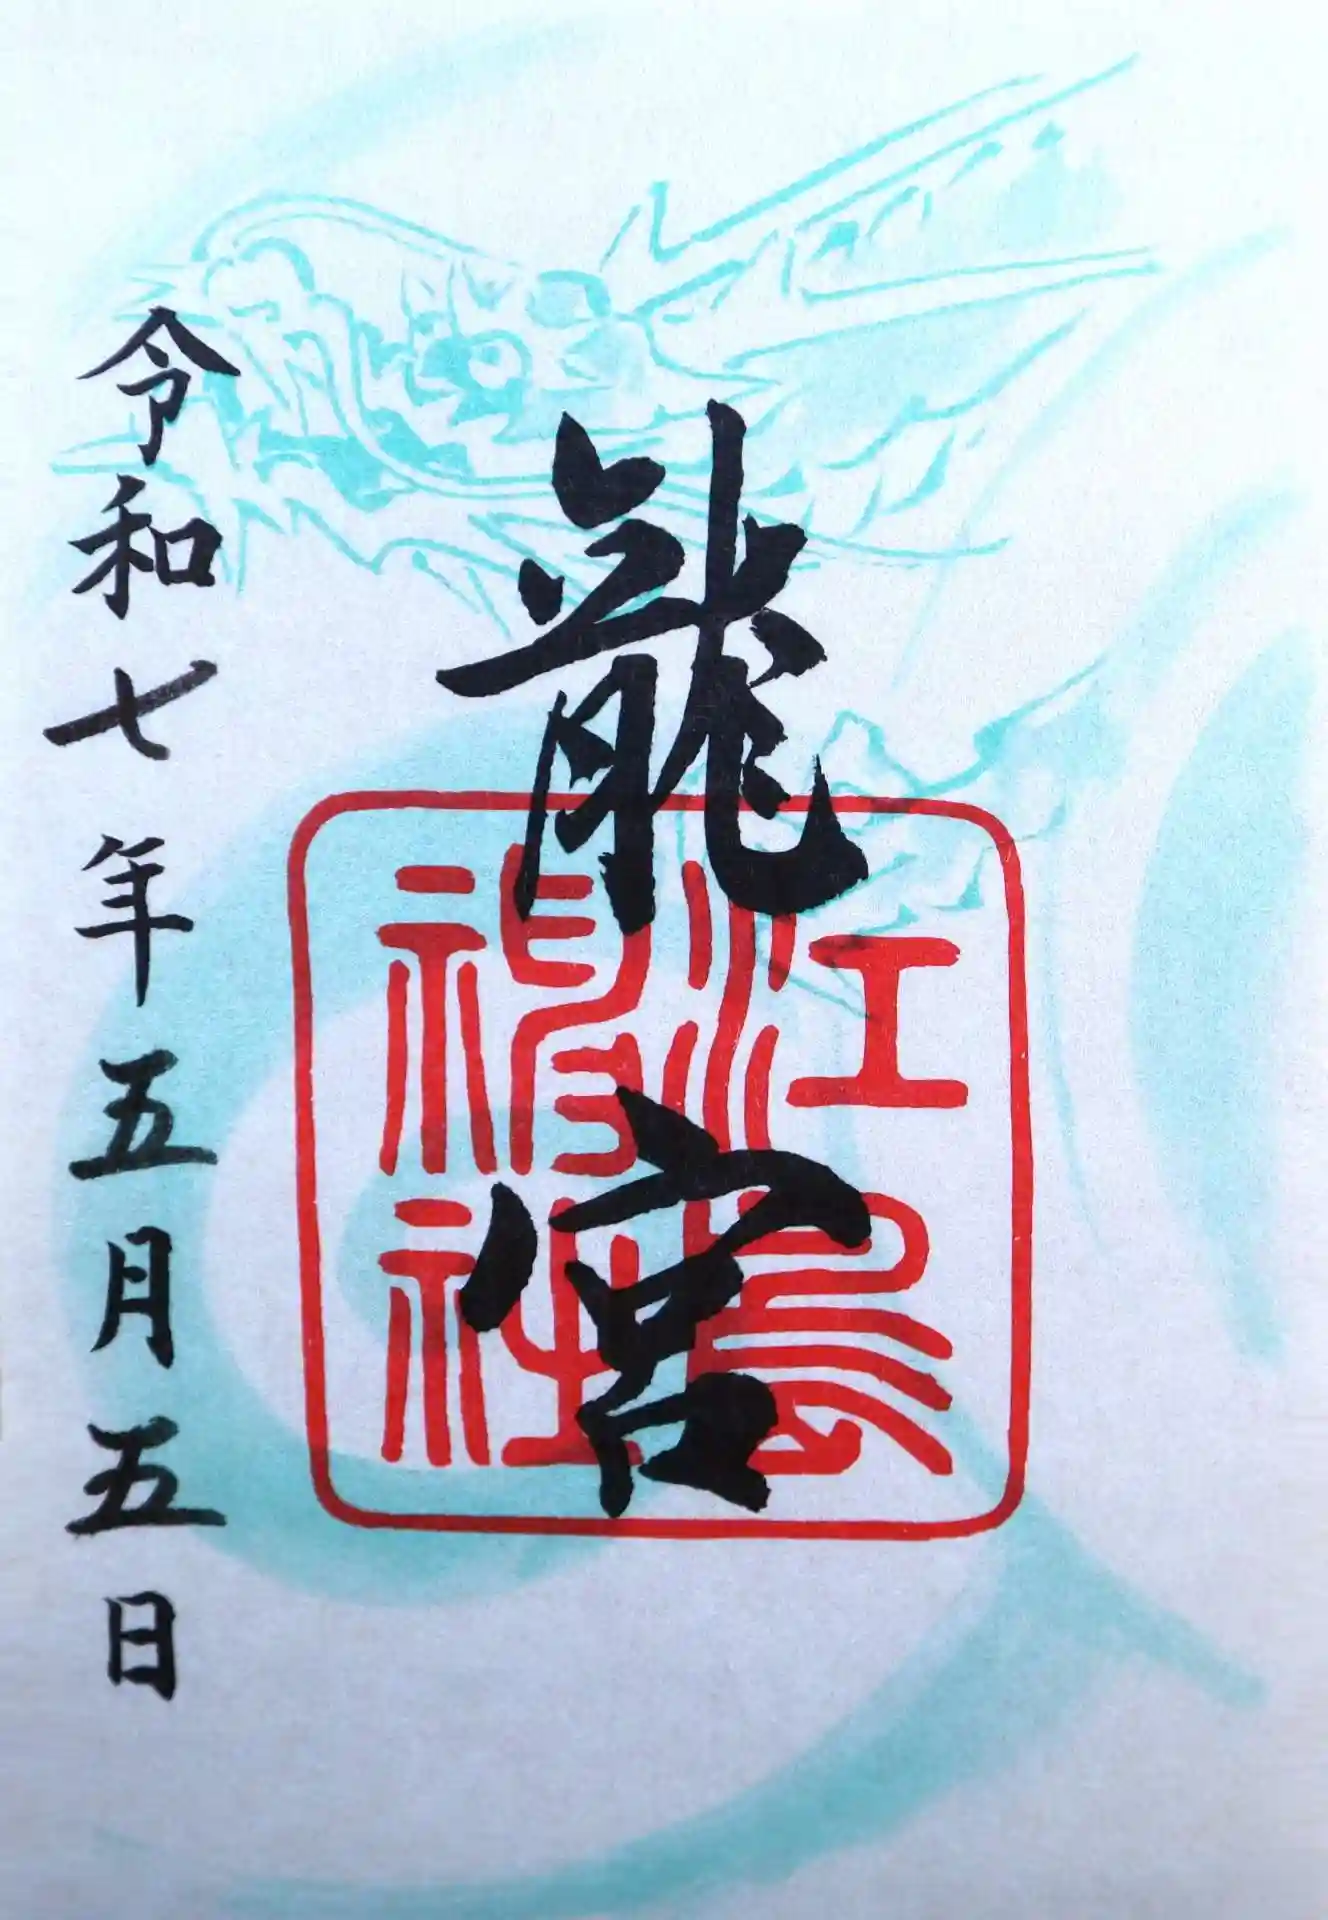 龍宮
江島
神社
令和七年五月五日